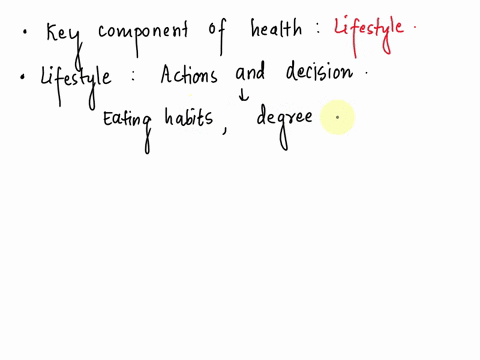 · Key component of health : Lifestyle .
· Lifestyle : Actions and decision .
↓
Eating habits , degree